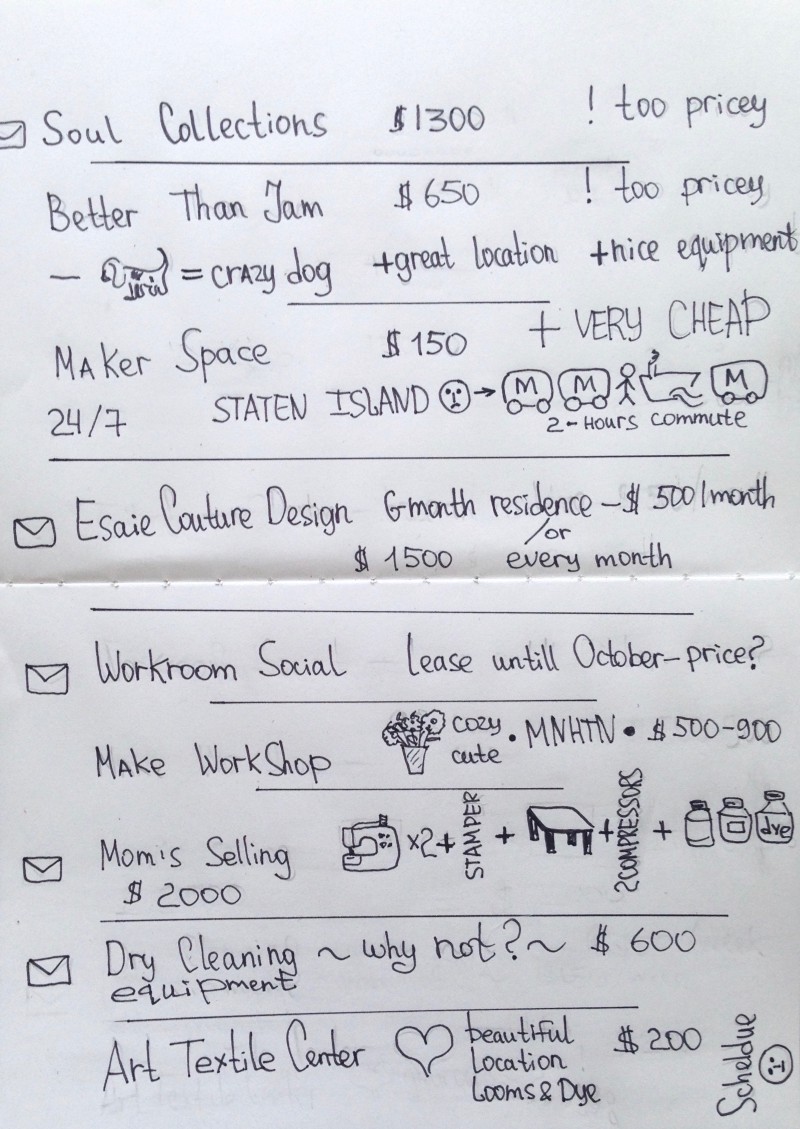 Soul Collections $1300 ! too pricey
Better Than Jam $650 ! too pricey
— = crazy dog +great location +nice equipment
Maker Space $150 + VERY CHEAP
24/7 STATEN ISLAND → M M M
2-Hours commute
Esaie Couture Design 6-month residence – $500/month
/or
$1500 every month
Workroom Social Lease untill October – price?
Make WorkShop cozy cute • MNHTN • $500-900
Mom's Selling x2 + STAMPER + + 2 COMPRESSORS + dye
$2000
Dry Cleaning ~ why not? ~ $600
equipment
Art Textile Center beautiful $200
Location
Looms & Dye
Scheldue